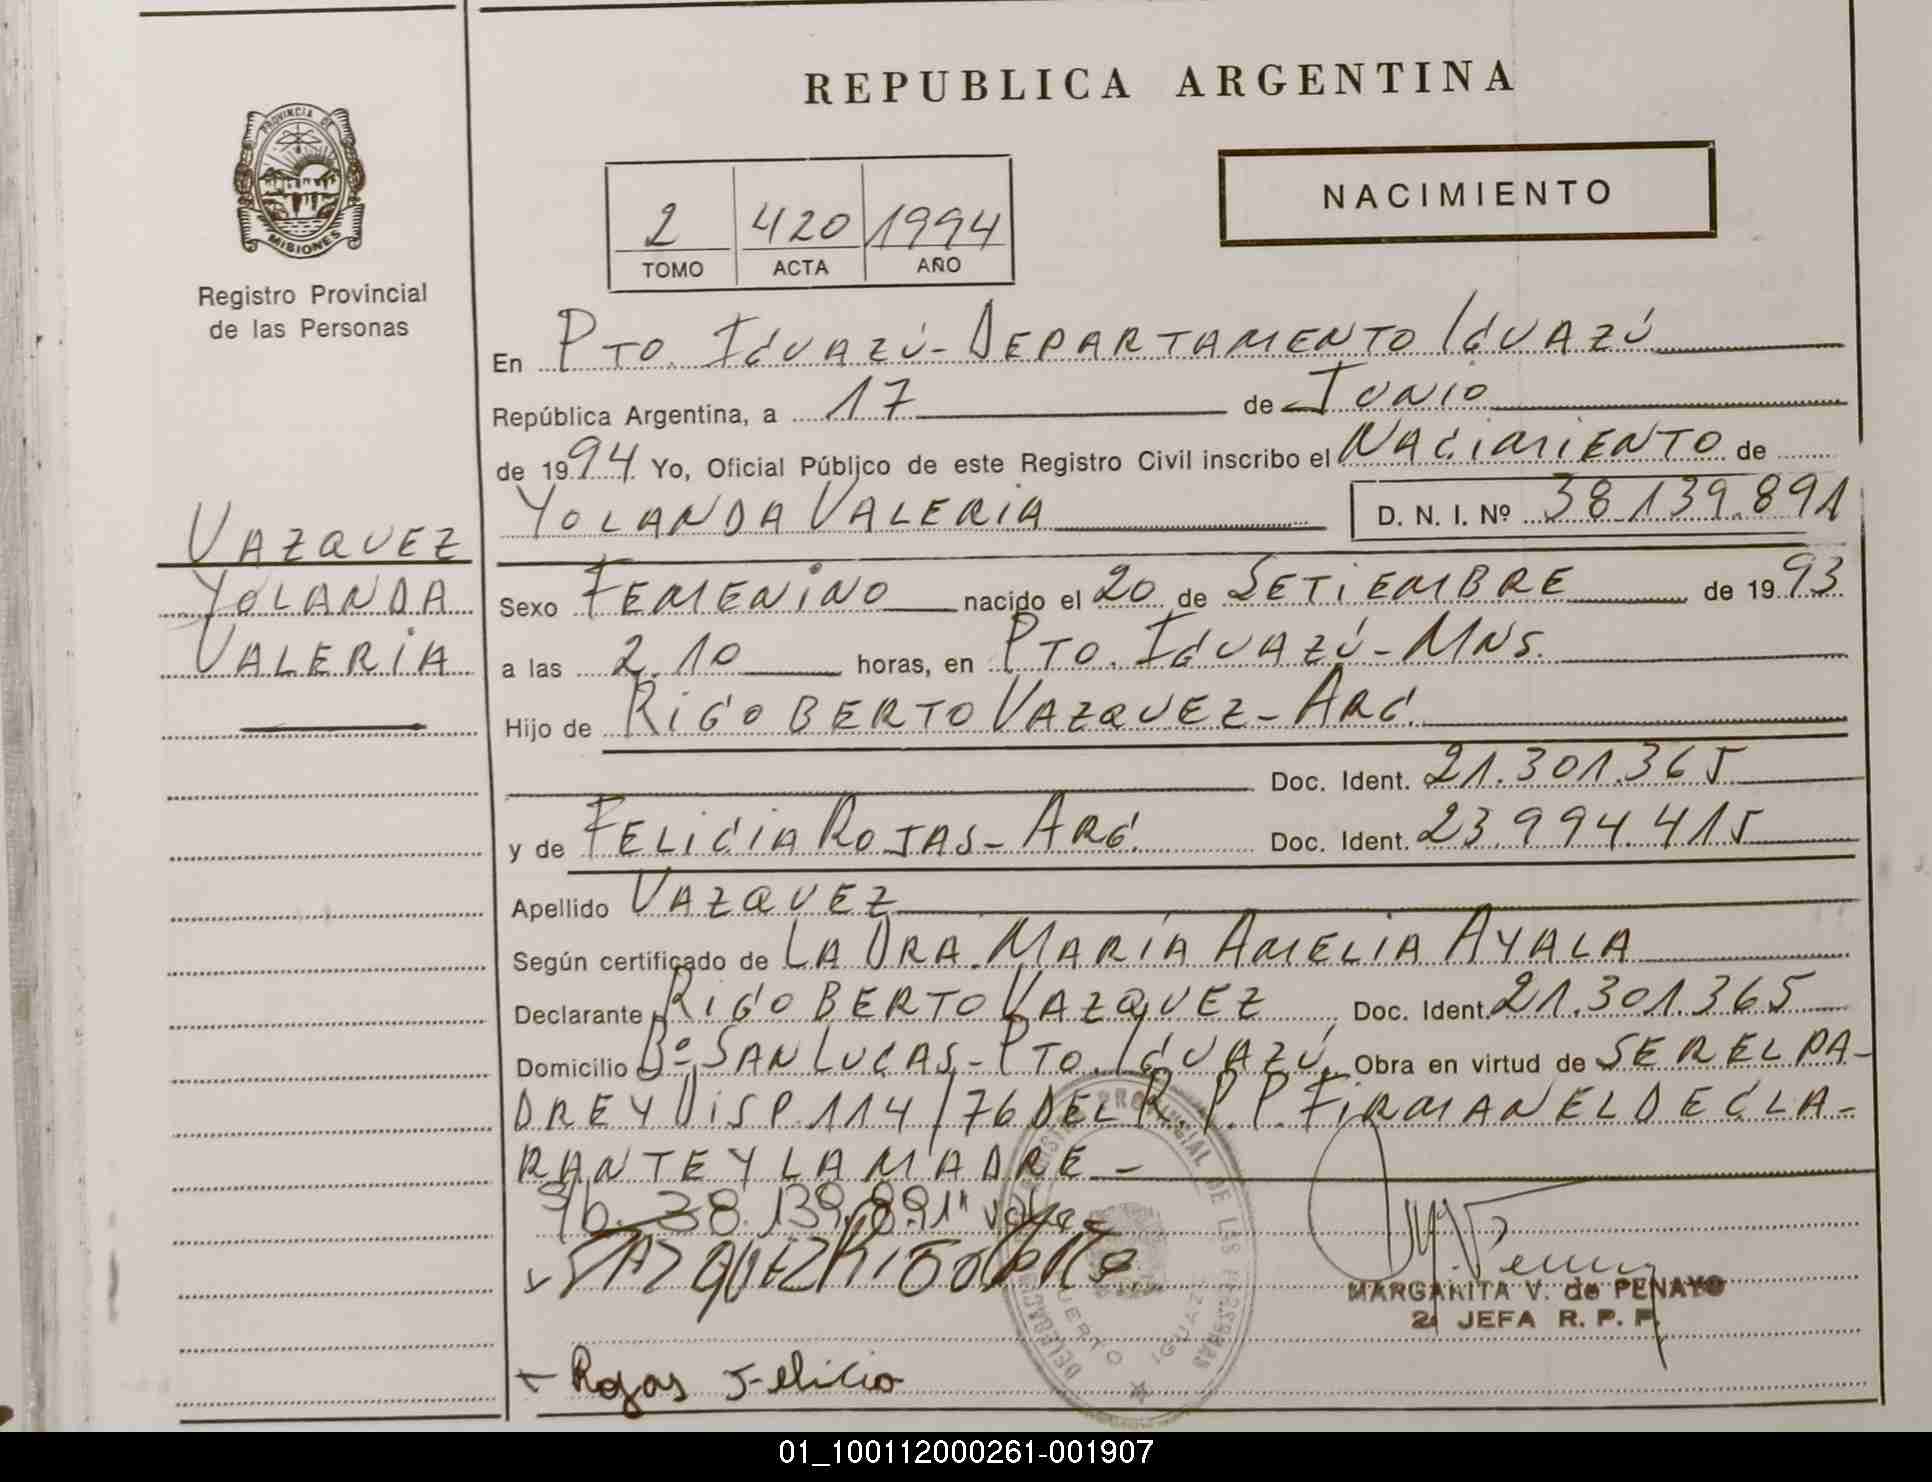 REPUBLICA ARGENTINA
PROVINCIA DE
MISIONES
Registro Provincial
de las Personas
NACIMIENTO
2 420 1994
TOMO ACTA AÑO
En PTO. IGUAZÚ - DEPARTAMENTO IGUAZÚ
República Argentina, a 17 de JUNIO
de 1994 Yo, Oficial Público de este Registro Civil inscribo el NACIMIENTO de
YOLANDA VALERIA D. N. I. Nº 38.139.891
VAZQUEZ
YOLANDA
VALERIA
Sexo FEMENINO nacido el 20 de SETIEMBRE de 1993
a las 2.10 horas, en PTO. IGUAZÚ - MNS.
Hijo de RIGOBERTO VAZQUEZ - ARG.
Doc. Ident. 21.301.365
y de FELICIA ROJAS - ARG. Doc. Ident. 23.994.415
Apellido VAZQUEZ
Según certificado de LA DRA. MARÍA AMELIA AYALA
Declarante RIGOBERTO VAZQUEZ Doc. Ident. 21.301.365
Domicilio Bº SAN LUCAS - PTO. IGUAZÚ. Obra en virtud de SER EL PA-
DRE Y DISP. 114/76 DEL R.P.P. FIRMAN EL DECLA-
RANTE Y LA MADRE -
S/b. 38.139.891" vale
VAZQUEZ RIGOBERTO
MARGARITA V. de PENAYO
2ª JEFA R. P. P.
Rojas Felicia
PUERTO IGUAZU
01_100112000261-001907